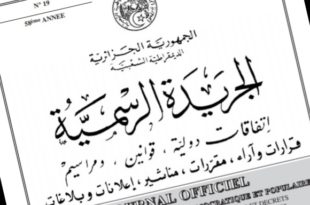 N° 19
58ème ANNEE
الجمهورية الجزائرية
الديمقراطية الشعبية
الجريدة الرسمية
إتفاقات دولية، قوانين، ومراسيم
قرارات وآراء، مقررات، مناشير، إعلانات وبلاغات
JOURNAL OFFICIEL
OCRATIQUE ET POPULAIRE
DECRETS